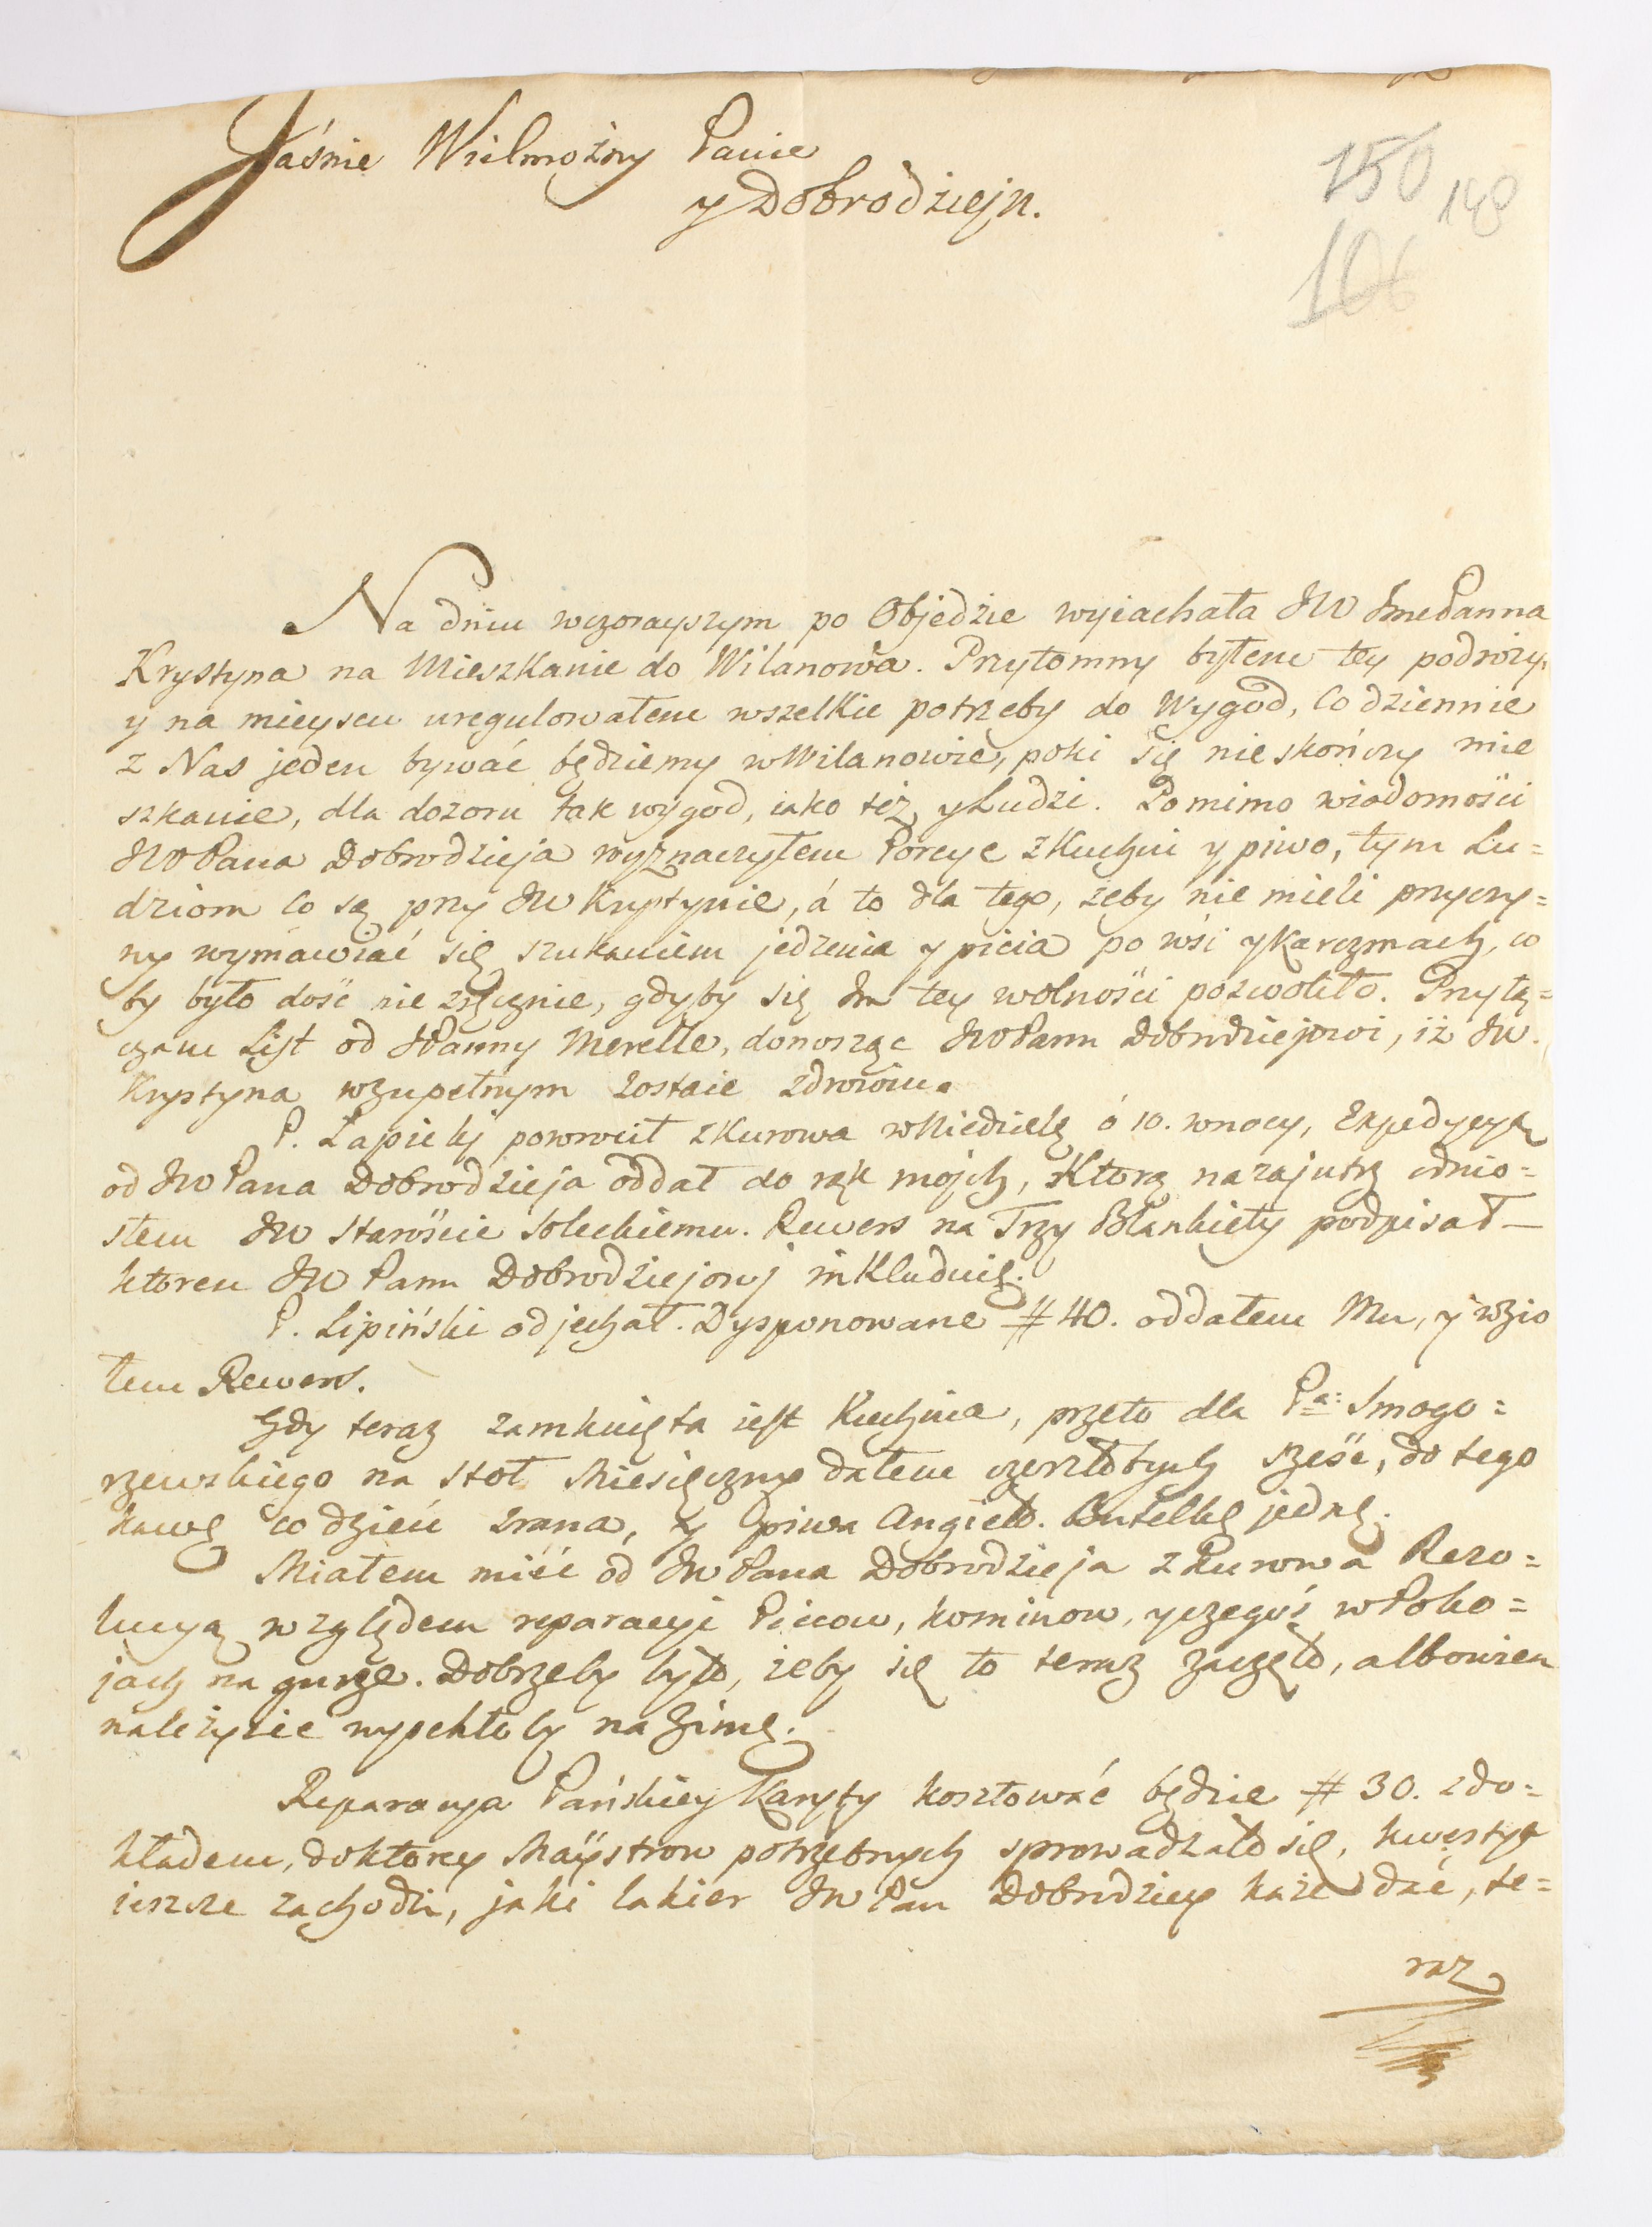 Jaśnie Wielmożny Panie
y Dobrodzieju.
150 148
106
Na dniu wczorayszym po Objedzie wyiachała JW JmePanna
Krystyna na Mieszkanie do Wilanowa. Przytomny byłem tey podroży,
y na mieyscu uregulowałem wszelkie potrzeby do Wygod, Codziennie
z Nas jeden bywać będziemy w Wilanowie, poki się nie skończy mie
szkanie, dla dozoru tak wygod, iako też y Ludzi. Pomimo wiadomości
JWPana Dobrodzieja wyznaczyłem Porcye z Kuchni y piwo, tym Lu=
dziom co są przy JW Krystynie, á to dla tego, żeby nie mieli przyczy=
ny wymawiać się szukaniem jedzenia y picia po wsi y Karczmach, co
by było dość nie zręcznie, gdyby się Im tey wolności pozwoliło. Przyłą=
czam List od JPanny Merelle, donosząc JWPanu Dobrodziejowi, iż JW.
Krystyna w zupełnym zostaie zdrowiu.
P. Łapickj powrocił z Kurowa w Niedzielę o 10. w nocy, Expedycyą
od JWPana Dobrodzieja oddał do rąk mojch, Ktorą nazajutrz odnio=
słem JW Staroście Soleckiemu. Rewers na Trzy Blankiety podpisał—
ktoren JW Panu Dobrodziejowj inkluduię.
P. Lipiński odjechał. Dysponowane # 40. oddałem Mu, y wzio
łem Rewers.
Gdy teraz zamknięta iest Kuchnia, przeto dla Pa: Smogo=
rzewskiego na Stoł Miesięczny dałem czerzłotych sześć, do tego
kawę co dzień zrana, y piwa Angiels. Butelkę jednę.
Miałem mieć od JWPana Dobrodzieja z Kurowa Rezo=
lucyą względem reparacyi Piecow, kominow, y czegoś w Poko=
jach na gurze. Dobrzeby było, żeby się to teraz zaczęło, albowiem
należycie wyschłoby na Zimę.
Reparacya Pańskiey Karyty kosztować będzie # 30. z do=
kładem, do ktorey Maystrow potrzebnych sprowadzało się, kwestya
ieszcze zachodzi, jaki lakier JW Pan Dobrodziey każe dać, te=
raz